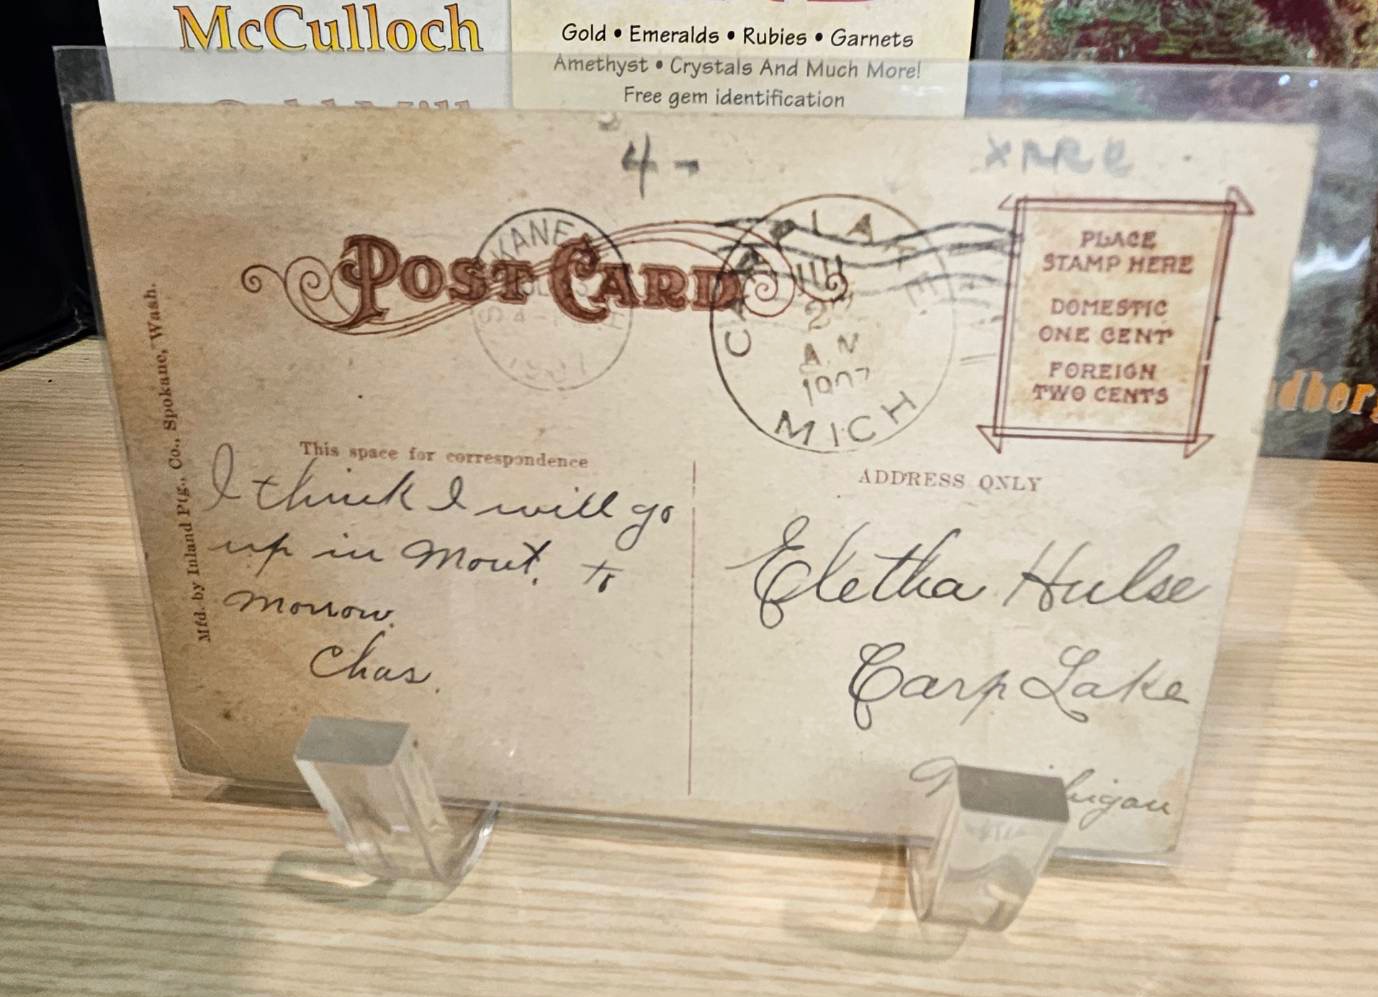 McCulloch
Gold • Emeralds • Rubies • Garnets
Amethyst • Crystals And Much More!
Free gem identification
4-
POST CARD
KANE
1907
CARP LAKE
A.M
1907
MICH
PLACE
STAMP HERE
DOMESTIC
ONE CENT
FOREIGN
TWO CENTS
Mfd. by Inland Ptg., Co., Spokane, Wash.
This space for correspondence
I think I will go
up in Mont. to
morrow.
Chas.
ADDRESS ONLY
Eletha Hulse
Carp Lake